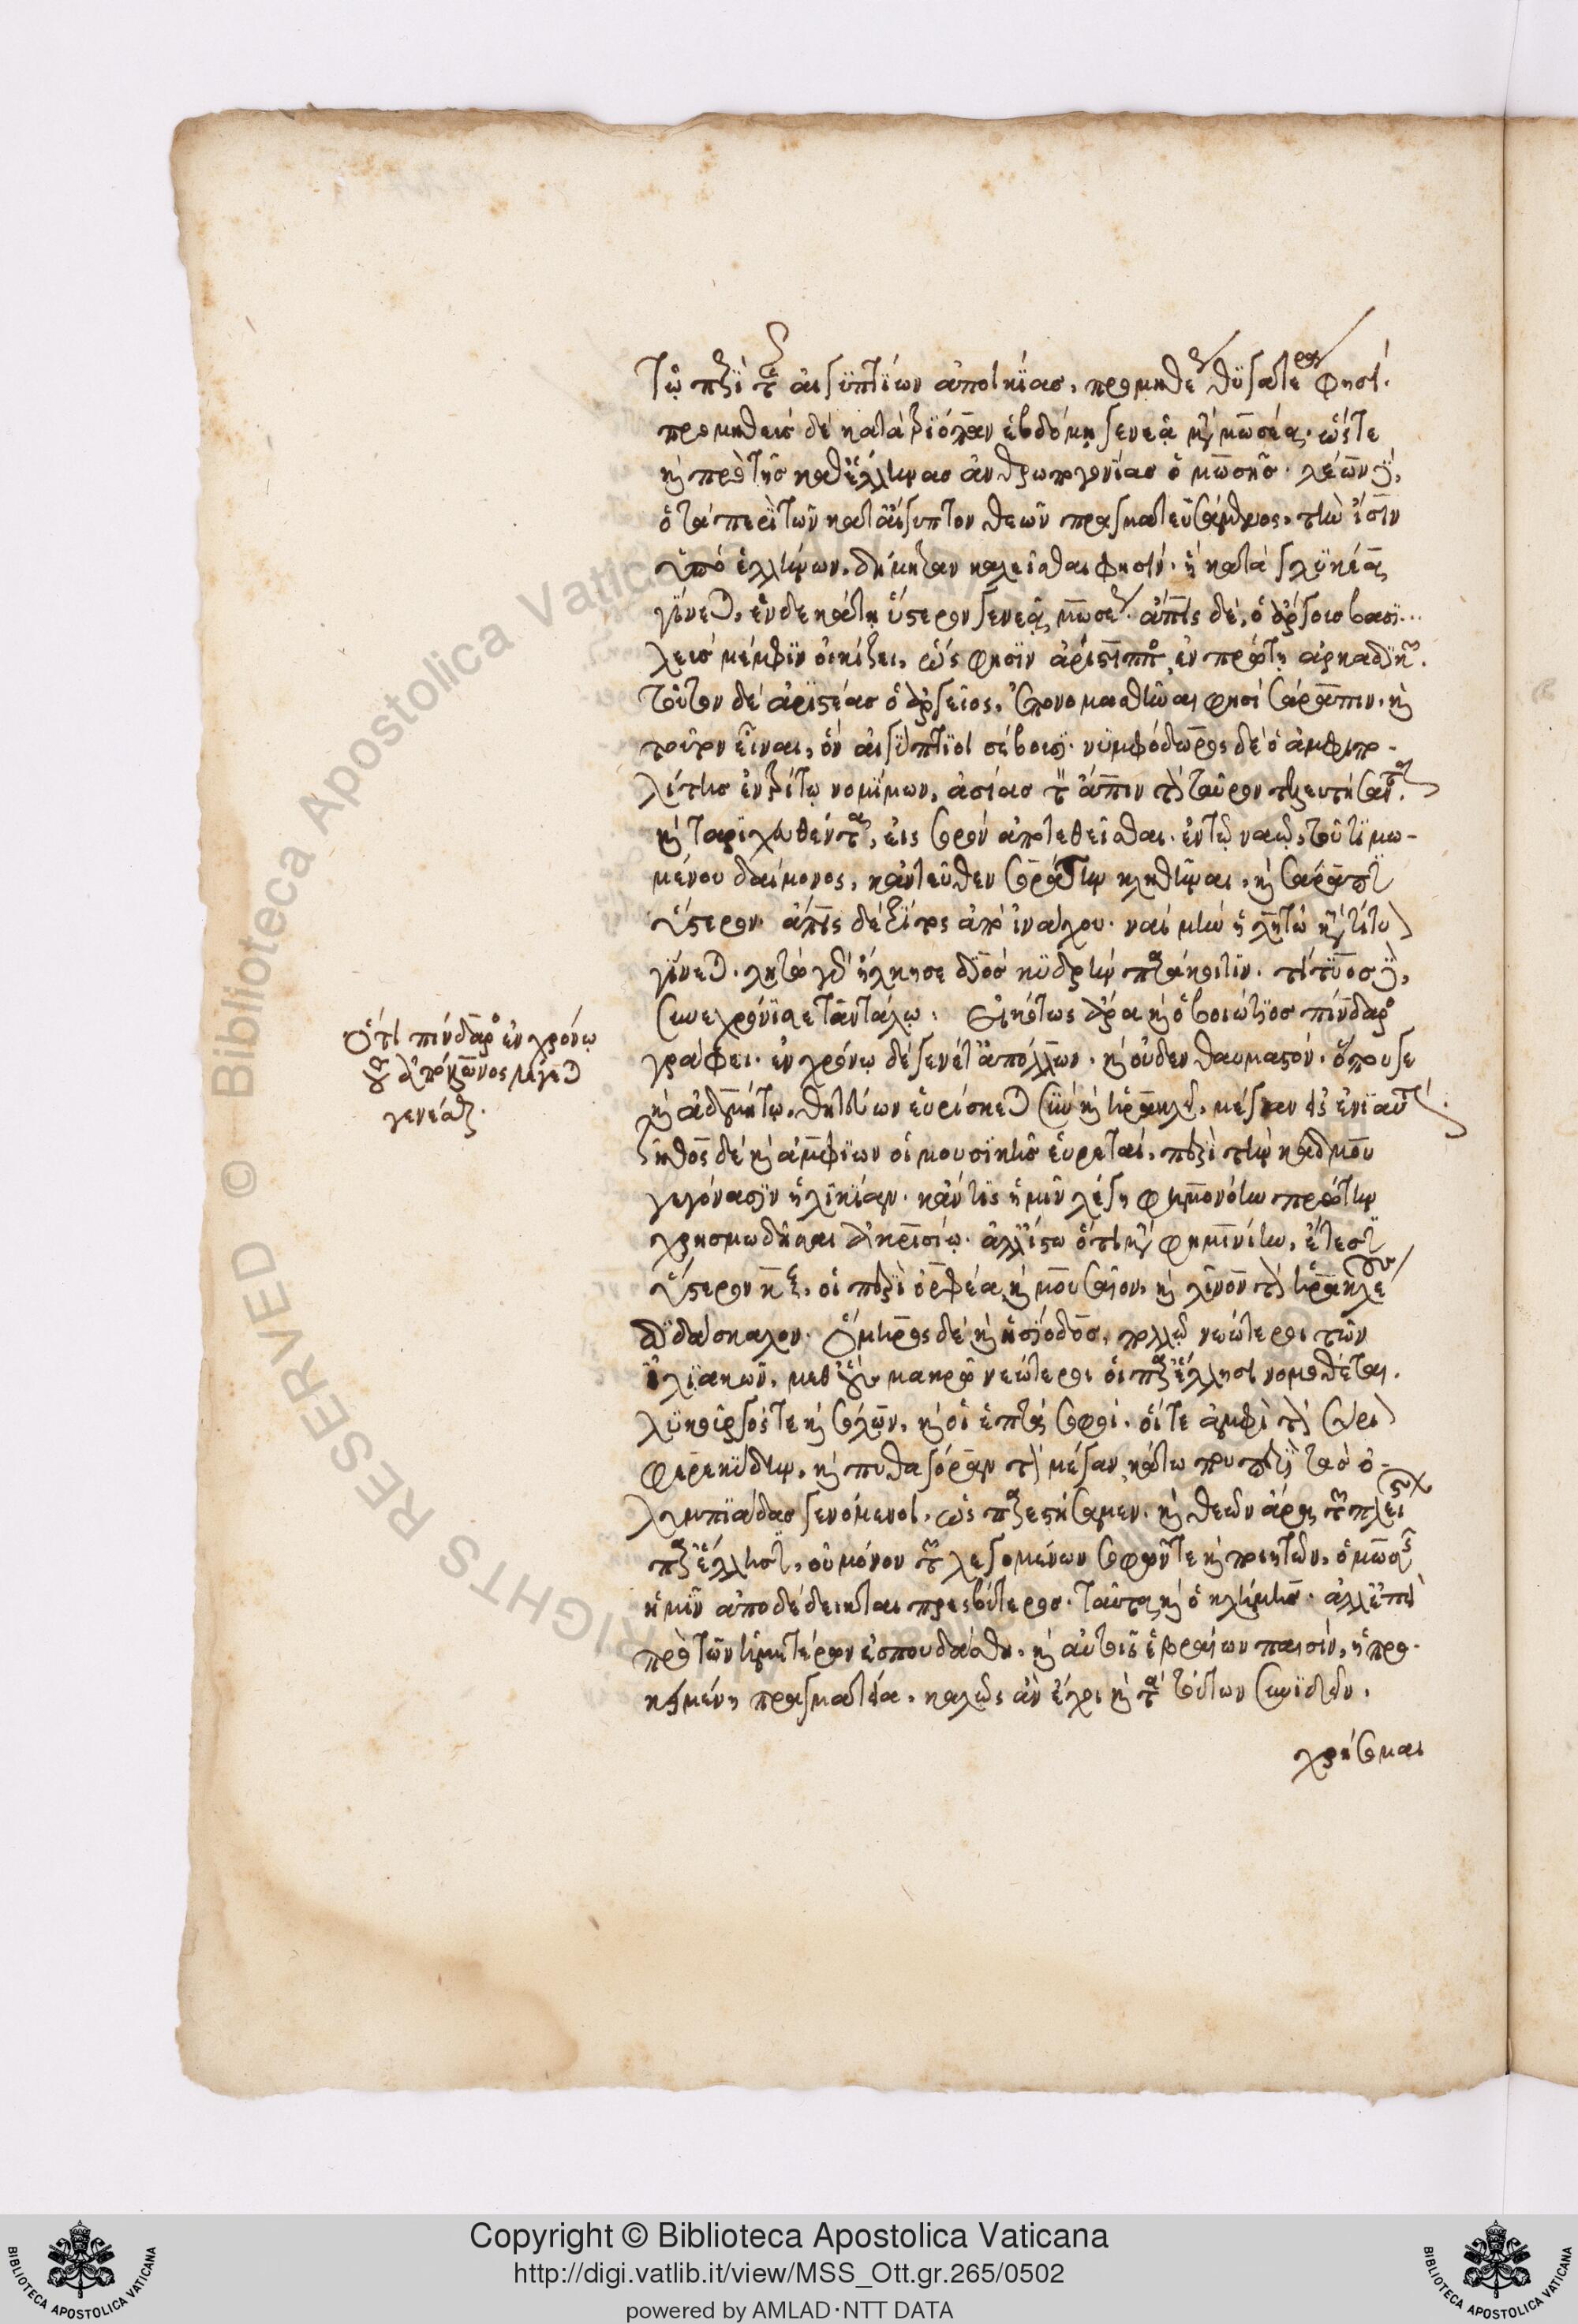 τῶ περὶ τῆς αἰγυπτίων ἀποικίας, προμηθέως θυγατέρα φησί.
προμηθεὺς δὲ κατὰ τριόπαν ἑβδόμη γενεᾷ μετὰ μωσέα. ὥστε
καὶ πρὸ τῆς καθ' ἕλληνας ἀνθρωπογονίας ὁ μωσῆς. λέων δὲ,
ὁ τὰ περὶ τῶν κατ' αἴγυπτον θεῶν πραγματευσάμενος, τὴν ἶσιν
ὑπὸ ἑλλήνων, δήμητραν καλεῖσθαι φησίν. ἣ κατὰ λυγκέα,
γίνεται, ἑνδεκάτη ὕστερον γενεᾷ μωσέως. ἆπίς δὲ, ὁ ἄργους βασι-
λεὺς μέμφιν οἰκίζει, ὥς φησιν ἀρίστιππος, ἐν πρώτη ἀρκαδικῶν.
τοῦτον δὲ ἀριστέας ὁ ἀργεῖος, ἐπονομασθῆναι φησὶ σάραπιν. καὶ
τοῦτον εἶναι, ὃν αἰγύπτιοι σέβουσι. νυμφόδωρος δὲ ὁ ἀμφιπο-
λίτης ἐν τρίτῳ νομίμων, ἀσίας τὸν ἆπιν τὸν ταῦρον τελευτήσαντα.
καὶ ταριχευθέντα, εἰς σορὸν ἀποτεθεῖσθαι. ἐν τῷ ναῷ, τοῦ τιμω-
μένου δαίμονος, κἀντεῦθεν σορόαπιν κληθῆναι, καὶ σάραπιν
ὕστερον. ἆπις δὲ τρίτος ἀπὸ ἰνάχου. ναὶ μὴν ἡ λητὼ κατὰ τίτυον
γίνεται. λητὼ γὰρ ἥλκησε διὸς κυδρὴν παράκοιτιν. τιτυὸς δὲ,
συνεχρόνισε ταντάλῳ. εἰκότως ἄρα καὶ ὁ βοιώτιος πίνδαρος
γράφει. ἐν χρόνῳ δὲ γένετ' ἀπόλλων. καὶ οὐδὲν θαυμαστόν. ὅπου γε
καὶ ἀδμήτῳ, θητεύων εὑρίσκεται σὺν καὶ ἡρακλεῖ, μέγαν εἰς ἐνιαυτόν.
ζῆθος δὲ καὶ ἀμφίων οἱ μουσικῆς εὑρεταί, περὶ τὴν κάδμου
γεγόνασιν ἡλικίαν. κἄν τις ἡμῖν λέγῃ φημονόην πρώτην
χρησμωδῆσαι ἀκρισίῳ. ἀλλ' ἴστω ὅτι μετὰ φημονόην, ἔτεσιν
ὕστερον κζ, οἱ περὶ ὀρφέα, καὶ μουσαῖον, καὶ λῖνον τὸν ἡρακλέους
διδάσκαλον. ὅμηρος δὲ καὶ ἡσίοδος, πολλῷ νεώτεροι τῶν
ἰλιακῶν, μεθ' οὓς μακρῷ νεώτεροι οἱ παρ' ἕλλησι νομοθέται.
λυκοῦργός τε καὶ σόλων, καὶ οἱ ἑπτὰ σοφοί. οἵ τε ἀμφὶ τὸν σύριον
φερεκύδην, καὶ πυθαγόραν τὸν μέγαν, κάτω που περὶ τὰς ὀ-
λυμπιάδας γενόμενοι, ὡς παρεστήσαμεν. καὶ θεῶν ἄρα τῶν πλείστων
παρ' ἕλλησιν, οὐ μόνον τῶν λεγομένων σοφῶν τε καὶ ποιητῶν, ὁ μωσῆς
ἡμῖν ἀποδέδεικται πρεσβύτερος. ταῦτα καὶ ὁ κλήμης. ἀλλ' ἐπεὶ
πρὸ τῶν ἡμετέρων ἐσπουδάσθη, καὶ αὐτοῖς ἑβραίων παισίν, ἡ προ-
κειμένη πραγματεία, καλῶς ἂν ἔχοι καὶ τὰ τούτων συνιδεῖν.
χρήσομαι
ὅτι πίνδαρος ἐν χρόνῳ
τὸν ἀπόλλωνος λέγεται
γενέσθαι.
Copyright © Biblioteca Apostolica Vaticana
http://digi.vatlib.it/view/MSS_Ott.gr.265/0502
powered by AMLAD·NTT DATA